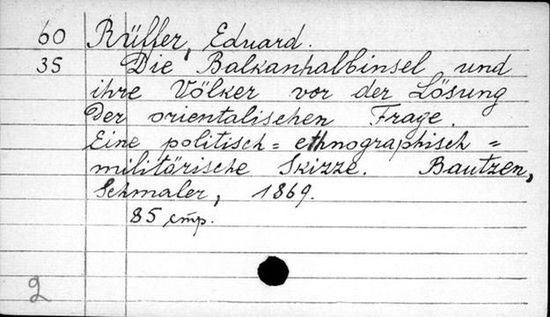 60 Rüffer, Eduard.
35 Die Balkanhalbinsel und
ihre Völker vor der Lösung
der orientalischen Frage.
Eine politisch=ethnographisch=
militärische Skizze. Bautzen,
Schmaler, 1869.
85 стр.
2